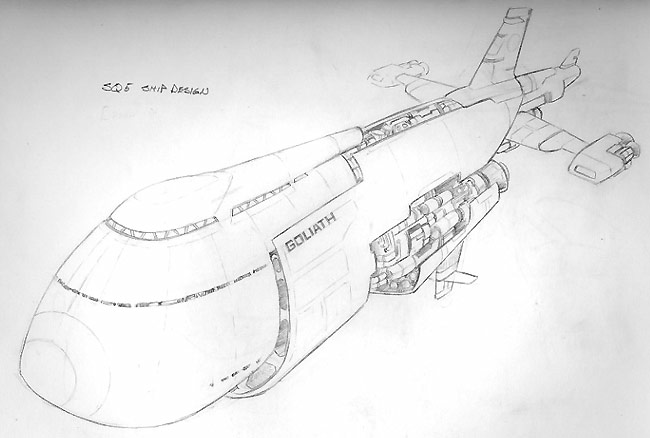 SQ5 SHIP DESIGN
GOLIATH